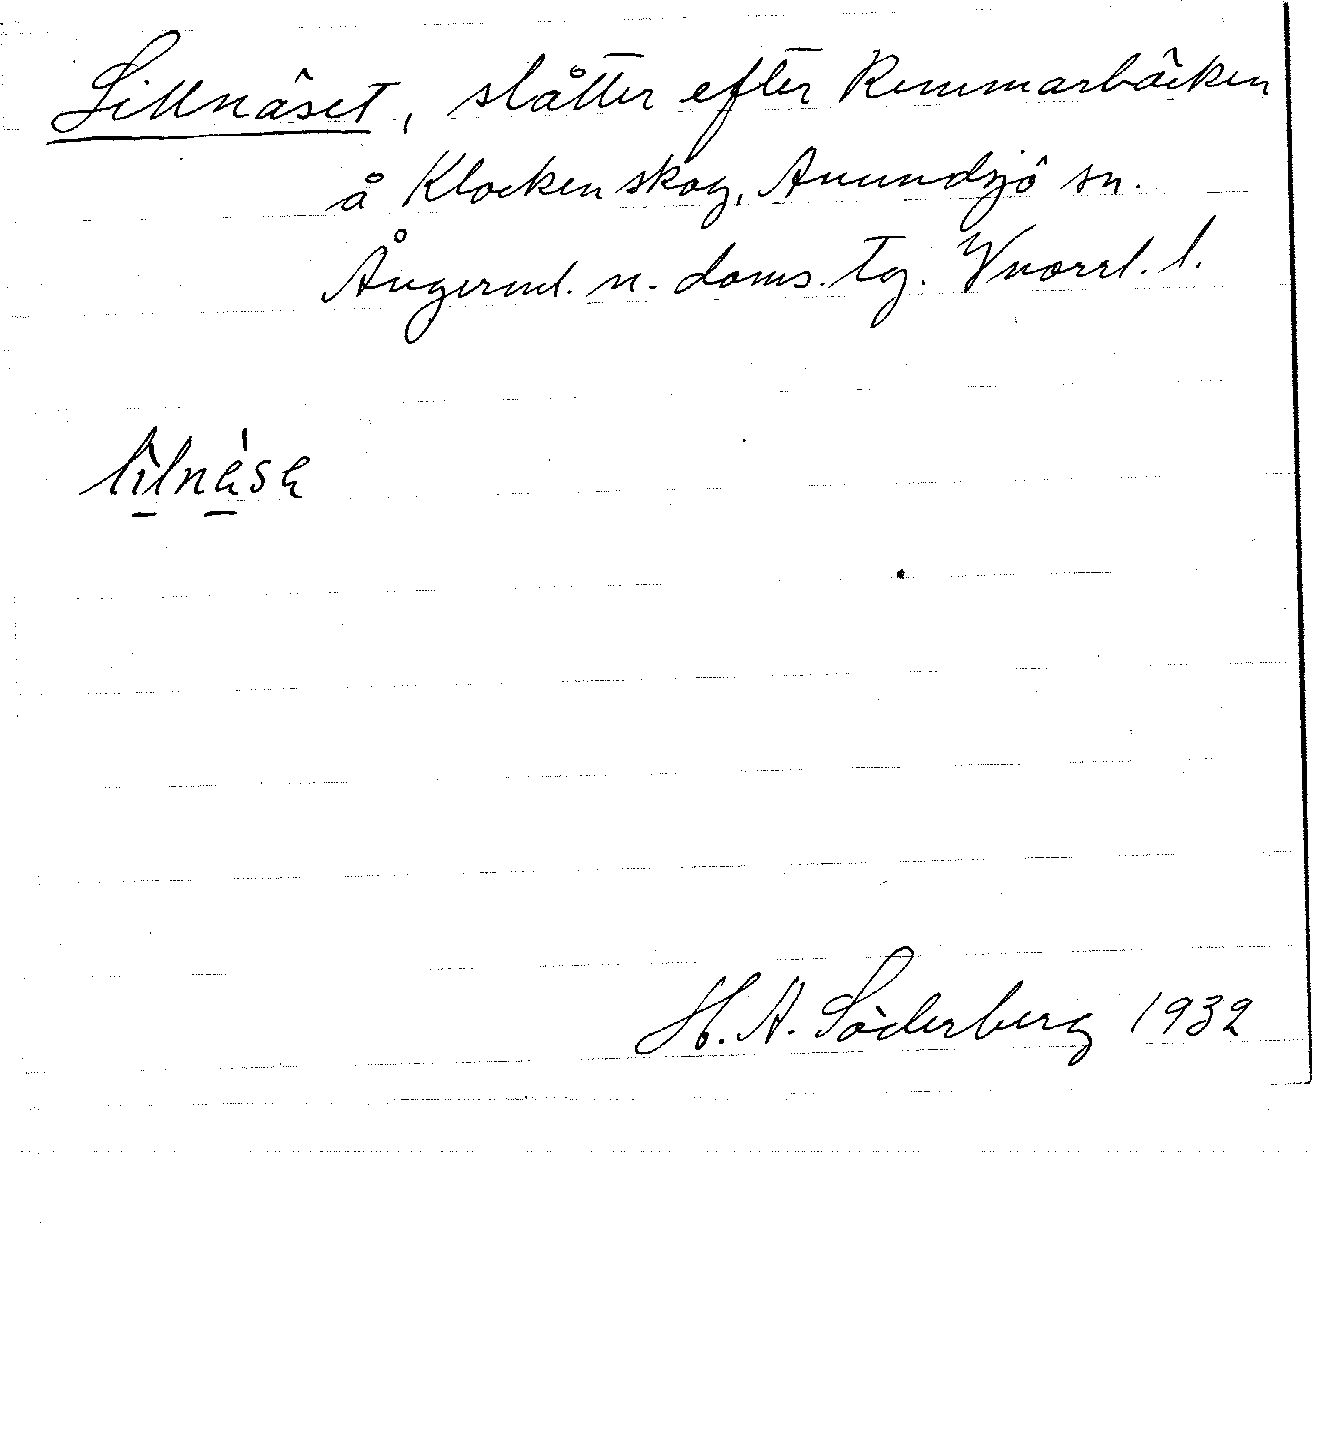 Lillnäset, slåtter efter Remmarbäcken
å Klocken skog, Anundsjö sn.
Ångerml. n. doms. tg. Vnorrl. l.
lilnäsa
H. A. Söderberg 1932